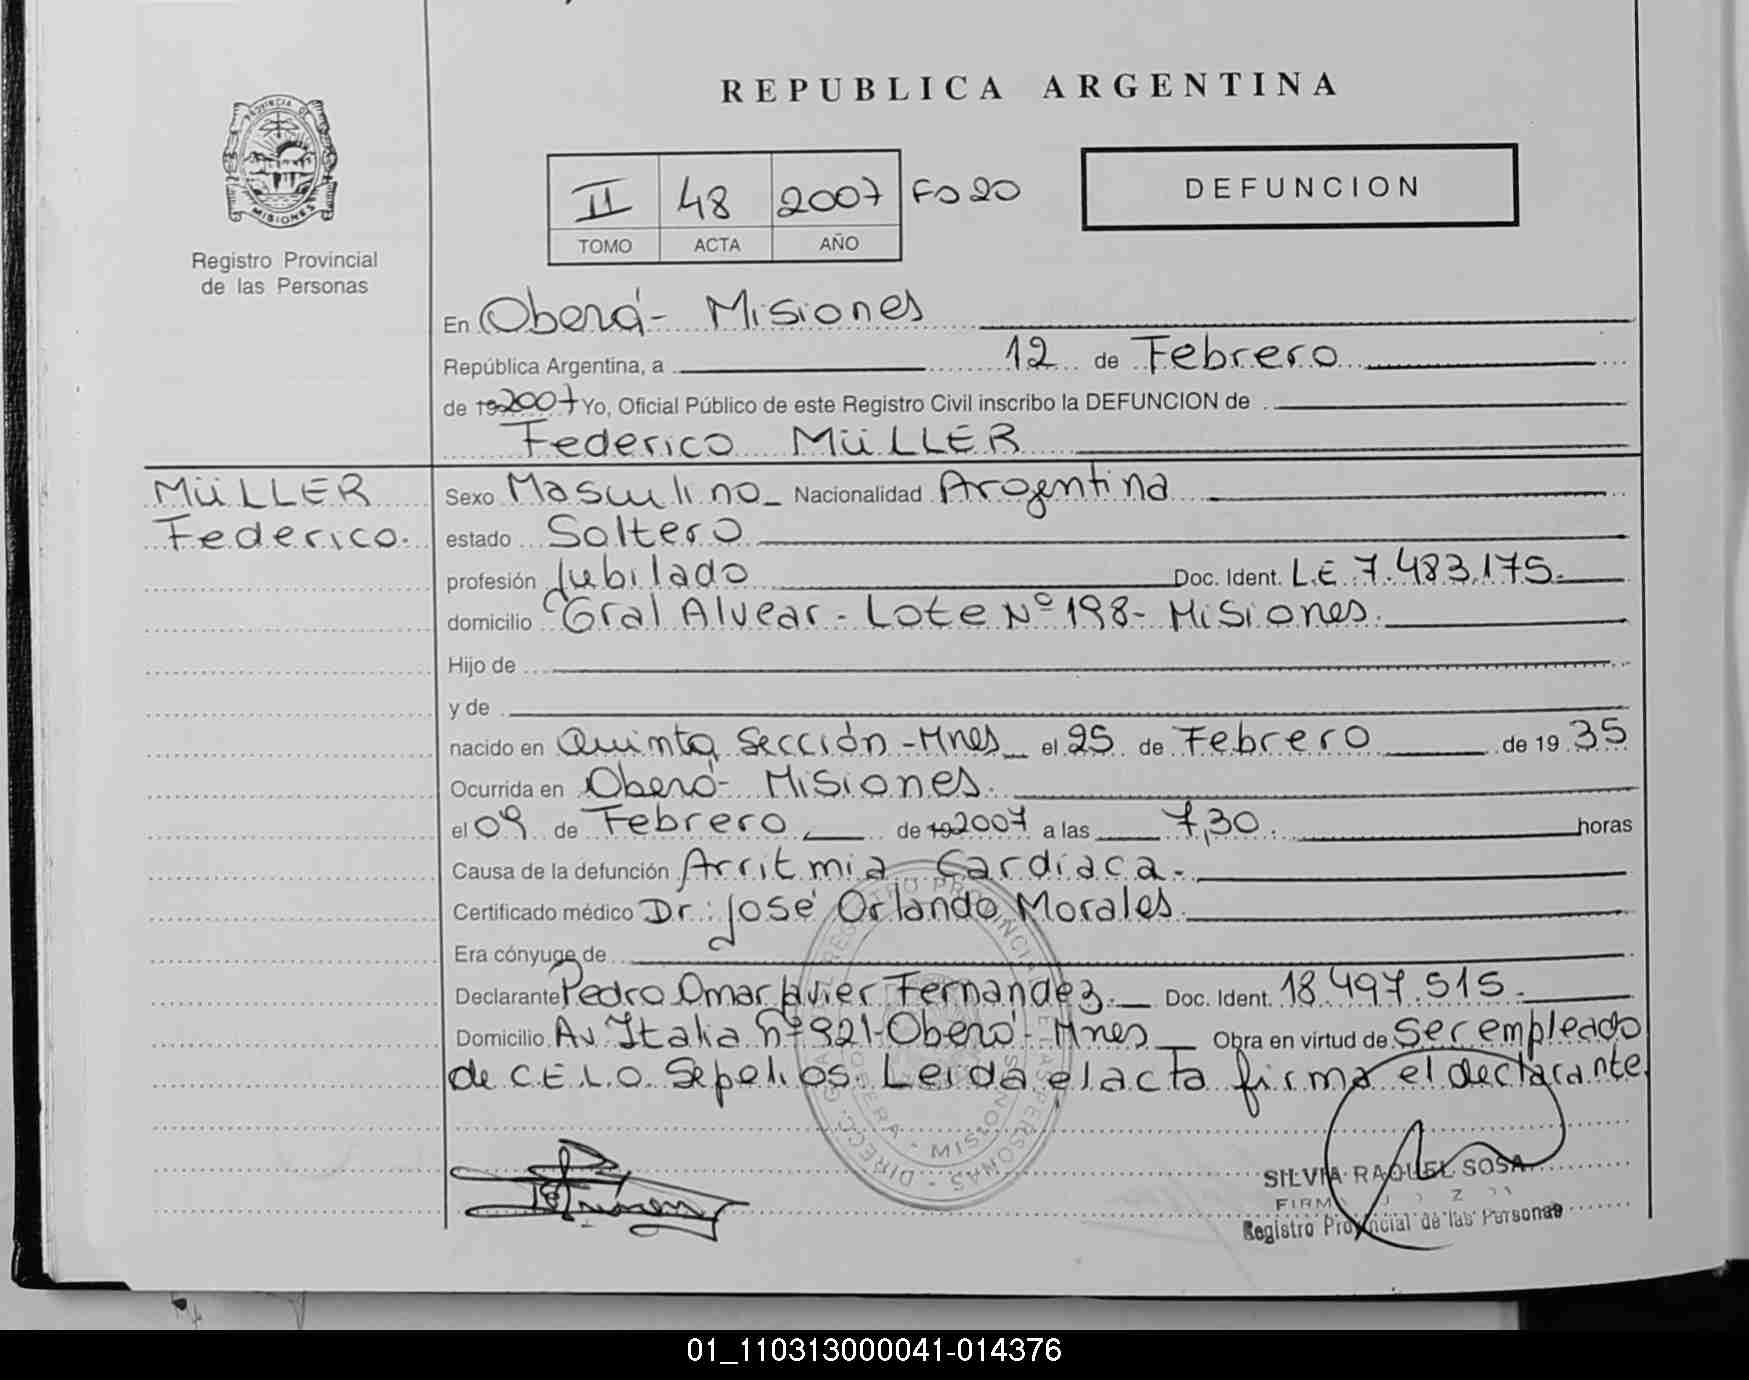 REPUBLICA ARGENTINA
PROVINCIA DE MISIONES
Registro Provincial
de las Personas
II 48 2007 Fº 20
TOMO ACTA AÑO
DEFUNCION
En Oberá - Misiones
República Argentina, a 12 de Febrero
de 19 2007 Yo, Oficial Público de este Registro Civil inscribo la DEFUNCION de
Federico MüLLER
MüLLER
Federico.
Sexo Masculino Nacionalidad Argentina
estado Soltero
profesión Jubilado Doc. Ident. L.E 7.483.175.
domicilio Gral Alvear - Lote Nº 198 - Misiones.
Hijo de
y de
nacido en Quinta Sección - Mnes el 25 de Febrero de 19 35
Ocurrida en Oberá - Misiones.
el 09 de Febrero de 19 2007 a las 7,30. horas
Causa de la defunción Arritmia Cardíaca.-
Certificado médico Dr: José Orlando Morales
Era cónyuge de
Declarante Pedro Omar Javier Fernandez. Doc. Ident. 18.497.515.
Domicilio Av. Italia nº 921 - Oberá - Mnes Obra en virtud de Ser empleado
de C.E.L.O. Sepelios. Leida el acta firma el declarante.
SILVIA RAQUEL SOSA
Registro Provincial de las Personas
01_110313000041-014376